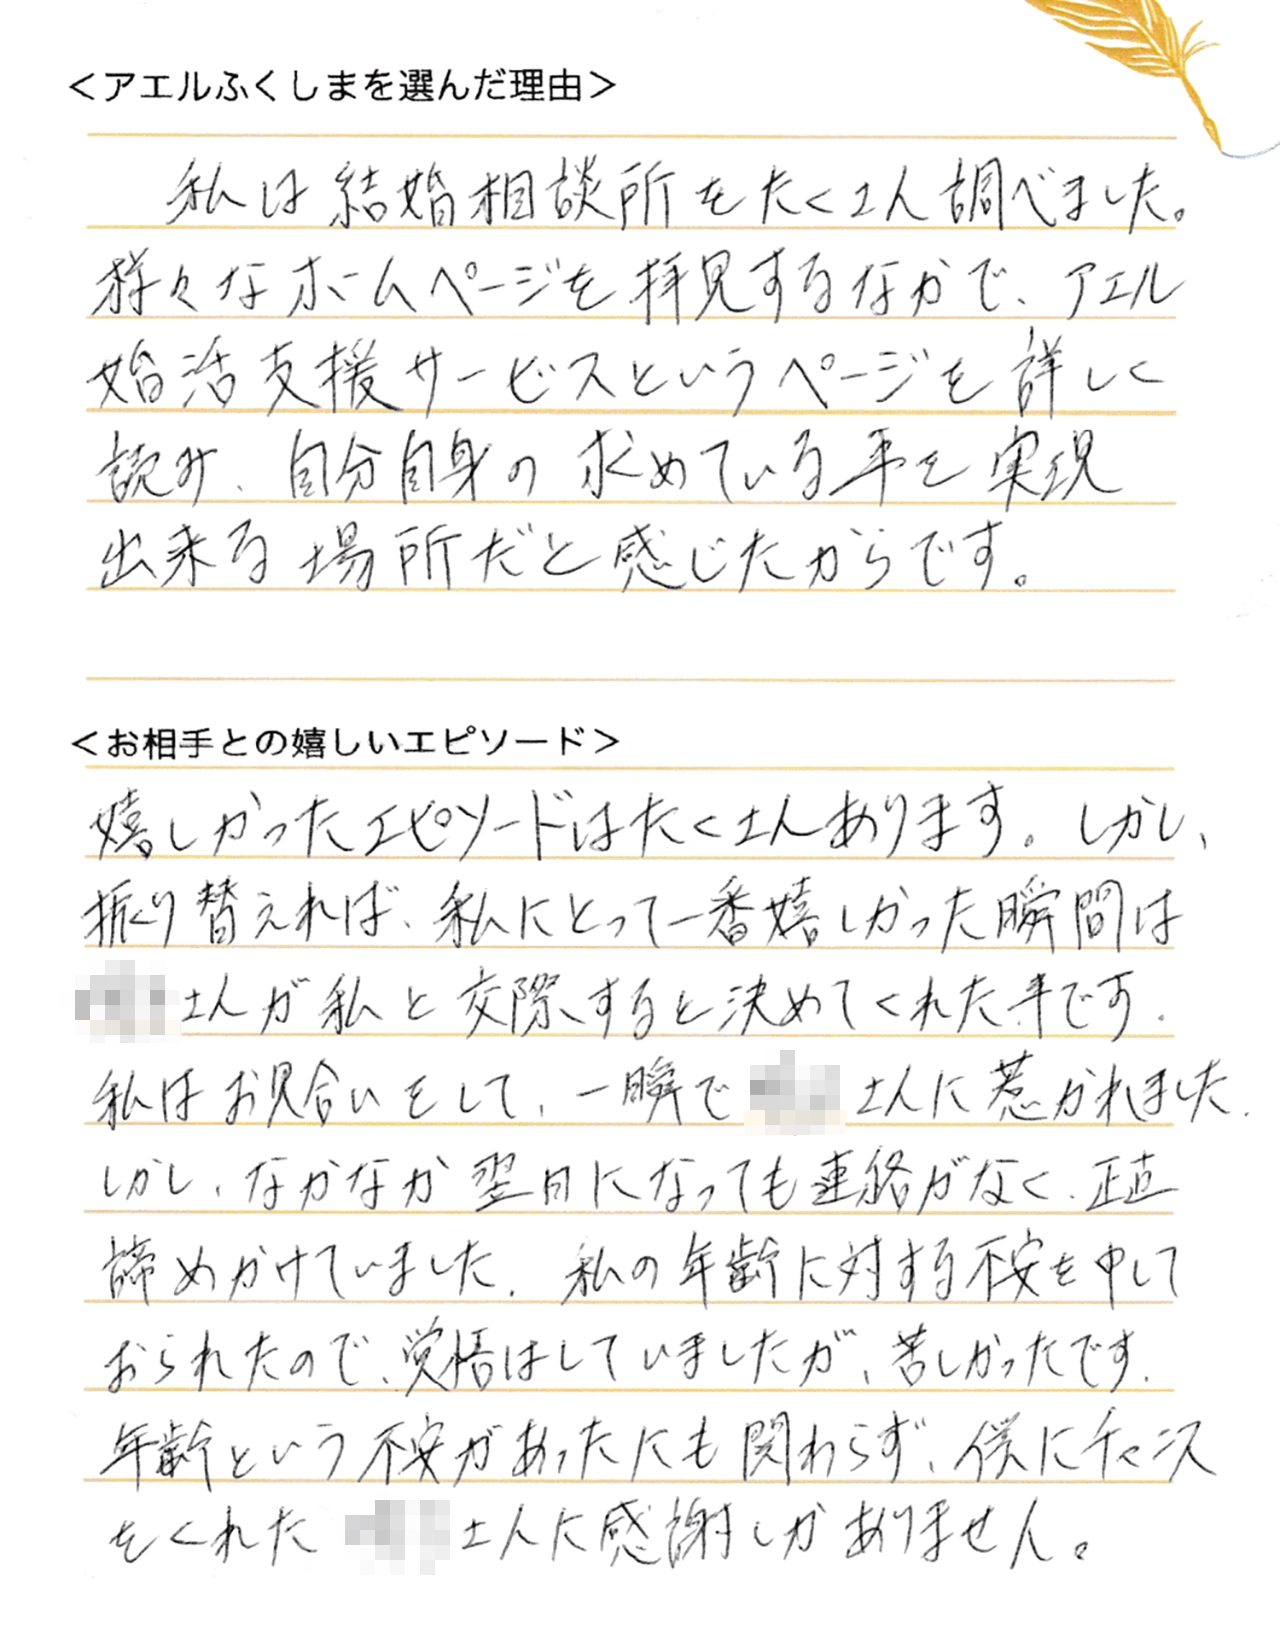 ＜アエルふくしまを選んだ理由＞
私は結婚相談所をたくさん調べました。
様々なホームページを拝見するなかで、アエル
婚活支援サービスというページを詳しく
読み、自分自身の求めている事を実現
出来る場所だと感じたからです。
＜お相手との嬉しいエピソード＞
嬉しかったエピソードはたくさんあります。しかし、
振り替えれば、私にとって一番嬉しかった瞬間は
さんが私と交際すると決めてくれた事です。
私はお見合いをして、一瞬で さんに惹かれました。
しかし、なかなか翌日になっても連絡がなく、正直
諦めかけていました。私の年齢に対する不安を申して
おられたので、覚悟はしていましたが、苦しかったです。
年齢という不安があったにも関わらず、僕にチャンス
をくれた さんに感謝しかありません。